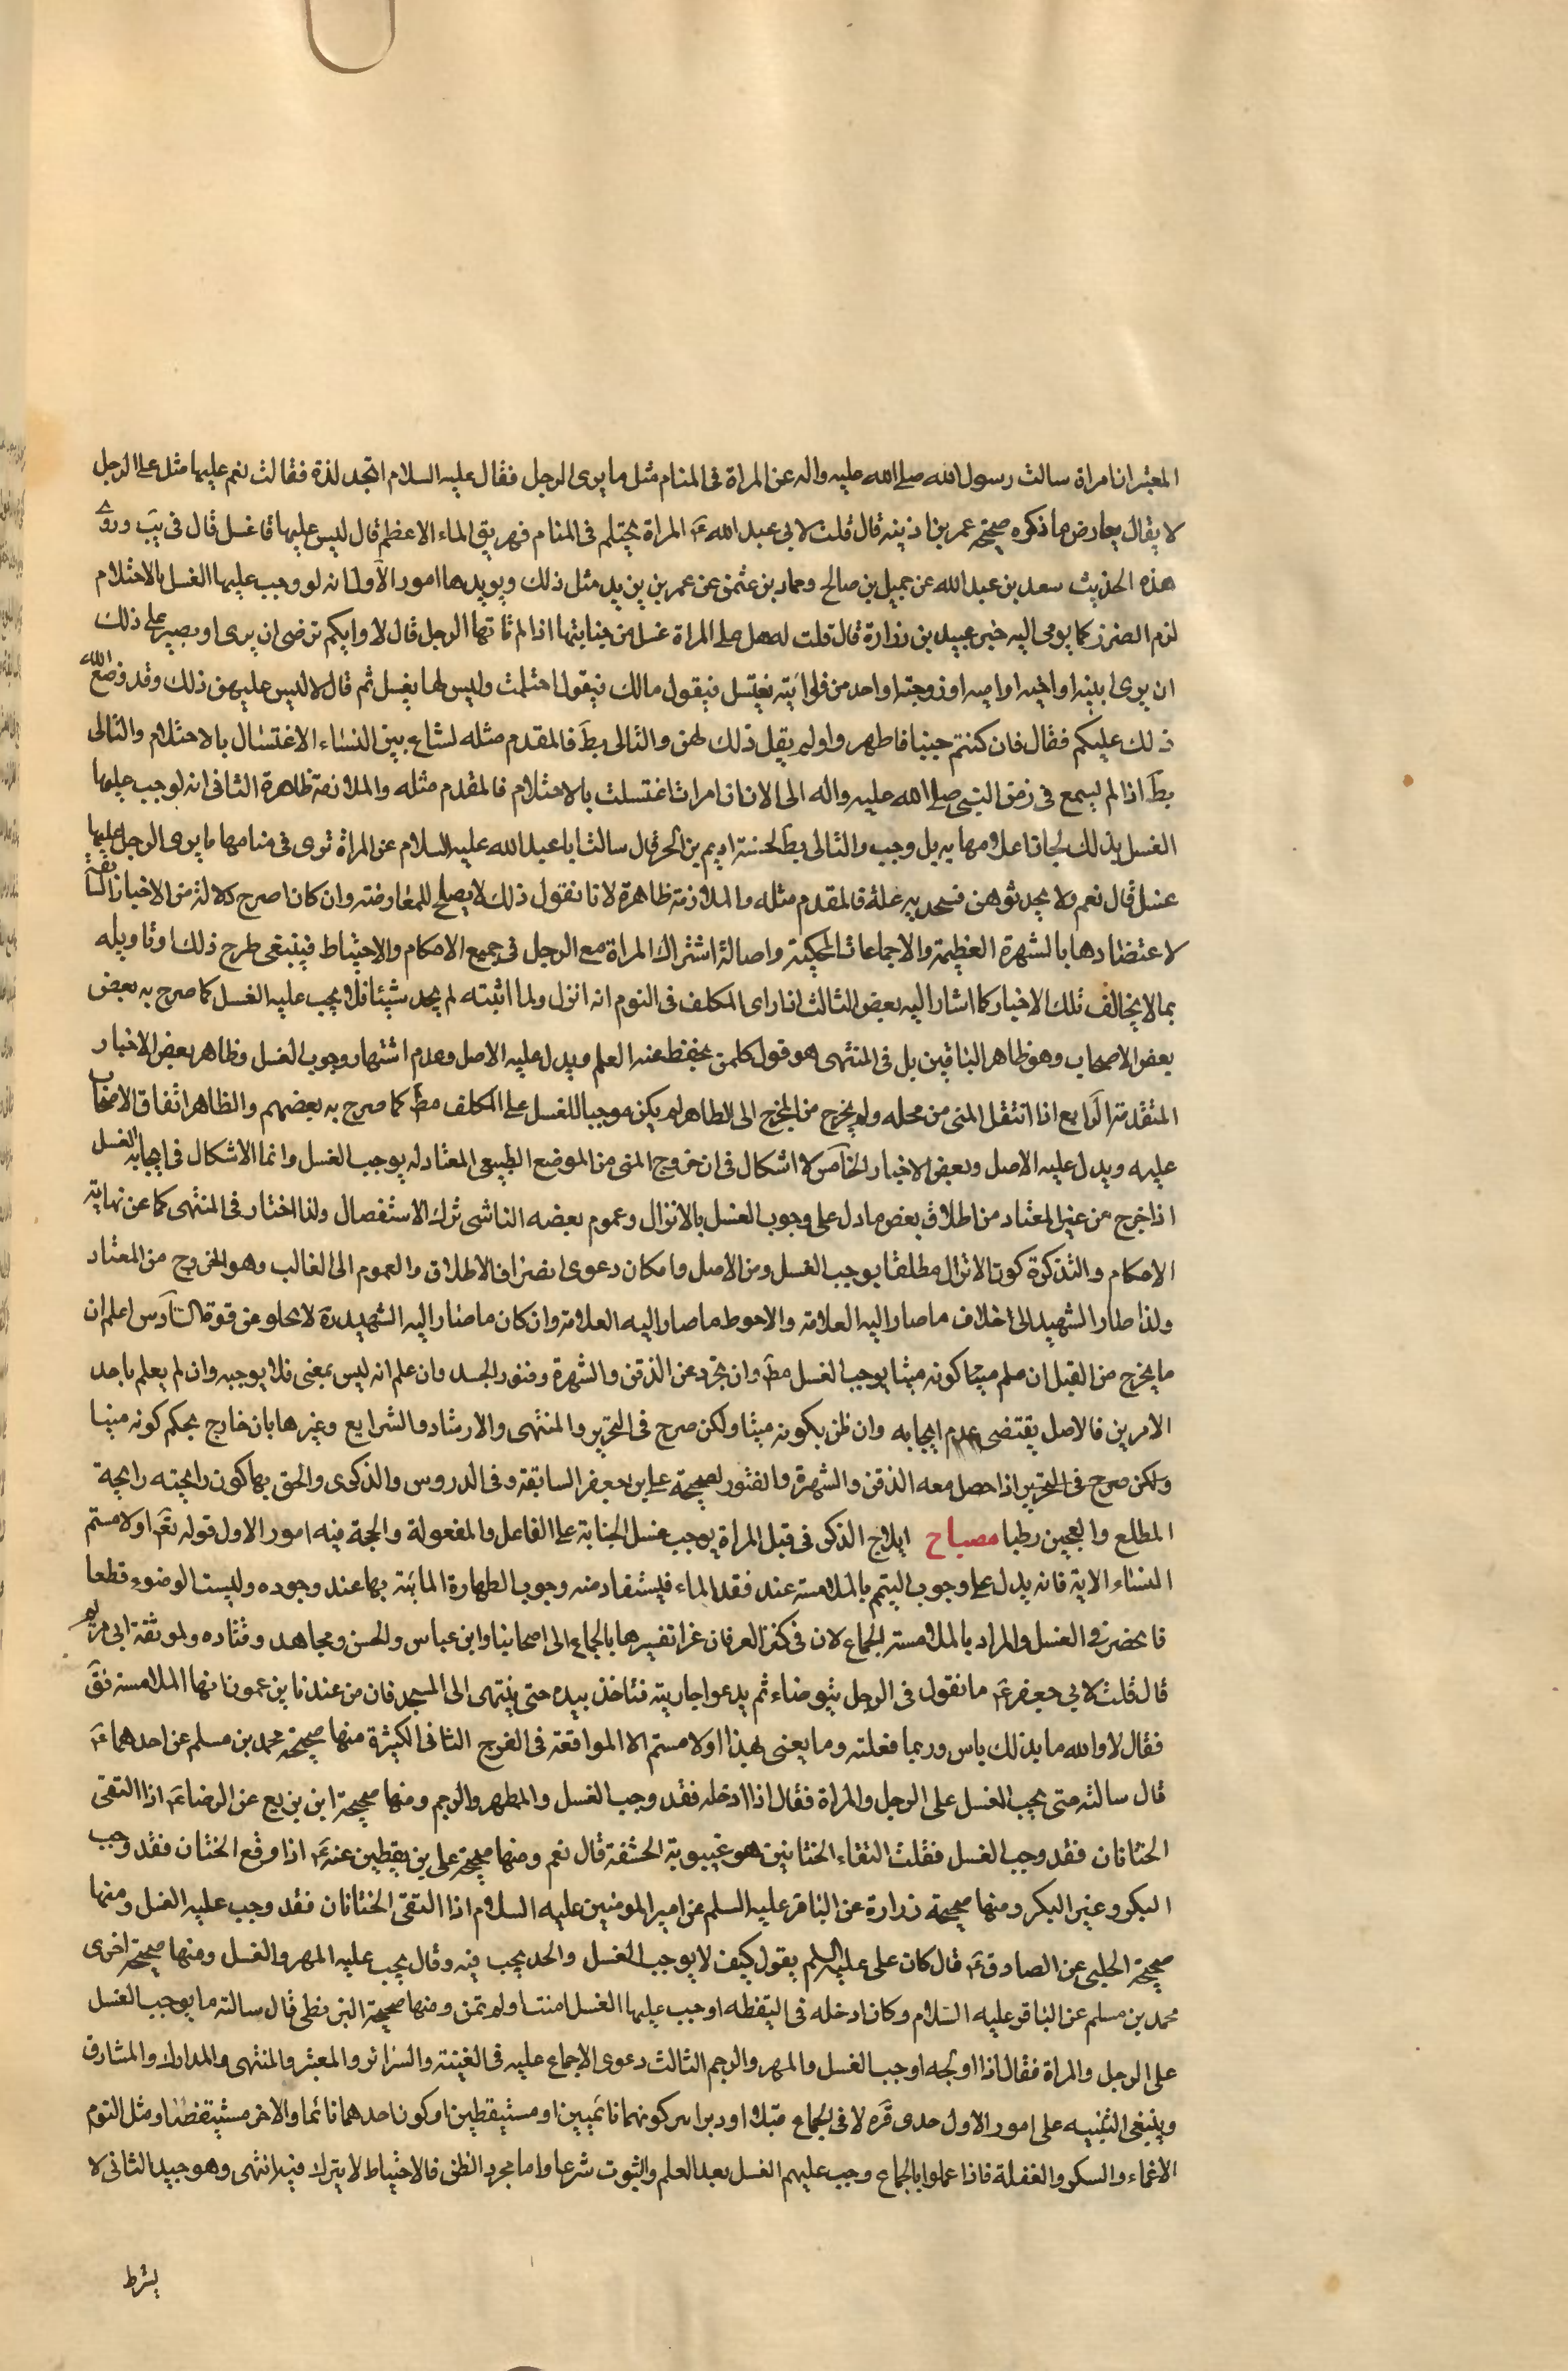 المعتبر ان امراة سالت رسول الله صلى الله عليه واله عن المراة فى المنام مثل ما يرى الرجل فقال عليه السلام اتجد لذة فقالت نعم عليها مثل على الرجل
لا يقال يعارض ما ذكره صحيحة عمر بن اذينه قال قلت لابى عبد الله ع المراة يحتلم فى المنام فهريق الماء الاعظم قال ليس عليها غسل قال فى يب وروى
هذه الحديث سعد بن عبد الله عن جميل بن صالح وحماد بن عثمن عن عمر بن يزيد مثل ذلك ويويدها امور الاول انه لو وجب عليها الغسل بالاحتلام
لزم الضرر كما يومى اليه خبر عبيد بن زرارة قال قلت له هل على المراة غسل من جنابتها اذا لم ياتها الرجل قال لا وايكم ترضى ان يرى او يصبر على ذلك
ان يرى ابنته او اخته او امه او زوجته او واحد من قرابته يغتسل فيقول مالك فيقول احتلمت وليس لها بعل ثم قال لا ليس عليهن ذلك وقد وضع الله
ذلك عليكم فقال فان كنتم جنبا فاطهروا ولم يقل ذلك لهن والتالى بط فالمقدم مثله لشاع بين النساء الاغتسال بالاحتلام والتالى
بط اذ لم يسمع فى زمن النبى صلى الله عليه واله الى الان ان امراة اغتسلت بالاحتلام فالمقدم مثله والملازمة ظاهرة الثانى انه لو وجب عليها
الغسل بذلك لجاز اعلامها به بل وجب والتالى بط لحسنة اديم بن الحر قال سالت ابا عبد الله عليه السلام عن المراة ترى فى منامها ما يرى الرجل عليها
غسل قال نعم ولا يحدثوهن فيتخذنه علة فالمقدم مثله والملازمة ظاهرة لانا نقول ذلك لا يصلح للمعارضه وان كان اصرح دلالة من الاخبار السابقة
لاعتضادها بالشهرة العظيمة والاجماعات المحكية واصالة اشتراك المراة مع الرجل فى جميع الاحكام والاحتياط فينبغى طرح ذلك او تاويله
بما لا يخالف تلك الاخبار كما اشار اليه بعض الثالث اذا راى المكلف فى النوم انه انزل ولما اثبته لم يجد شيئا فلا يجب عليه الغسل كما صرح به بعض
بعض الاصحاب وهو ظاهر الباقين بل فى المنتهى هو قول كلمن يحفظ عنه العلم ويدل عليه الاصل وعدم اشتهار وجوب الغسل وظاهر بعض الاخبار
المتقدمة الرابع اذا انتقل المنى من محله ولم يخرج من المخرج الى الظاهر لم يكن موجبا للغسل على المكلف مط كما صرح به بعضهم والظاهر اتفاق الاصحاب
عليه ويدل عليه الاصل وبعض الاخبار الخامس لا اشكال فى ان خروج المنى من الموضع الطبيعى المعتاد له يوجب الغسل وانما الاشكال فى ايجابه الغسل
اذا خرج من غير المعتاد من اطلاق بعض ما دل على وجوب الغسل بالانزال وعموم بعضه الناشى ترك الاستفصال ولذا اختار فى المنتهى كما عن نهاية
الاحكام والتذكرة كون الانزال مطلقا يوجب الغسل ومن الاصل وامكان دعوى انصراف الاطلاق والعموم الى الغالب وهو الخروج من المعتاد
ولذا صار الشهيد الى خلاف ما صار اليه العلامة والاحوط ما صار اليه العلامة وان كان ما صار اليه الشهيد ره لا يخلو من قوة السادس اعلم ان
ما يخرج من القبل ان علم منيا كونه منيا يوجب الغسل مط وان تجرد عن الدفق والشهرة وفتور الجسد وان علم انه ليس بمنى فلا يوجبه وان لم يعلم باحد
الامرين فالاصل يقتضى عدم ايجابه وان ظن بكونه منيا ولكن صرح فى التحرير والمنتهى والارشاد والشرايع وغيرها بان خارج يحكم كونه منيا
ولكن صرح فى التحرير اذا حصل معه الدفق والشهرة والفتور لصحيحة على بن جعفر السابقة وفى الدروس والذكرى والحق بها كون رايحته رايحة
المطلع والعجين رطبا مصباح ايلاج الذكر فى قبل المراة يوجب غسل الجنابة على الفاعل والمفعولة والحجة فيه امور الاول قوله تع او لامستم
النساء الاية فانه يدل على وجوب التيمم بالملامسة عند فقد الماء فيستفاد منه وجوب الطهارة المائية بها عند وجوده وليست الوضوء قطعا
فانحضرت فى الغسل والمراد بالملامسة الجماع لان فى كنز العرفان عزا تفسيرها بالجماع الى اصحابنا وابن عباس والحسن ومجاهد وقتاده ولموثقة ابى مريم
قال قلت لابى جعفر ع ما نقول فى الرجل يتوضاء ثم يدعوا جاريته فتاخذ بيده حتى ينتهى الى المسجد فان من عندنا يزعمون انها الملامسة فق
فقال لا والله ما بذلك باس وربما فعلته وما يعنى بهذا او لامستم الا المواقعة فى الفرج الثانى الكثيرة منها صحيحة محمد بن مسلم عن احدهما ع
قال سالته متى يجب الغسل على الرجل والمراة فقال اذا ادخله فقد وجب الغسل والمطهر والرجم ومنها صحيحة ابن بزيع عن الرضا ع اذا التقى
الختانان فقد وجب الغسل فقلت التقاء الختانين هو غيبوبة الحشفة قال نعم ومنها صحيحة على بن يقطين عنه ع اذا وقع الختان فقد وجب
البكر وغير البكر ومنها صحيحة زرارة عن الباقر عليه السلم عن امير المومنين عليه السلام اذا التقى الختانان فقد وجب عليه الغسل ومنها
صحيحة الحلبى عن الصادق ع قال كان على عليه السلم يقول كيف لا يوجب الغسل والحد يجب فيه وقال يجب عليه المهر والغسل ومنها صحيحة اخرى
محمد بن مسلم عن الباقر عليه السلام وكان ادخله فى اليقظه اوجب عليها الغسل امنت او لم تمن ومنها صحيحة البزنطى قال سالته ما يوجب الغسل
على الرجل والمراة فقال اذا اولجه اوجب الغسل والمهر والرجم الثالث دعوى الاجماع عليه فى الغنية والسرائر والمعتبر والمنتهى والمدارك والمشارق
وينبغى التنبيه على امور الاول حدى قره لا فى الجماع قبلا او دبرا كونهما نائمين او مستيقظين او كون احدهما نائما والاخر مستيقظا ومثل النوم
الاغماء والسكر والغفلة فاذا عملوا بالجماع وجب عليهم الغسل بعد العلم والثبوت شرعا واما مجرد الظن فالاحتياط لا يترك فيه انتهى وهو جيد الثانى لا
يشرط